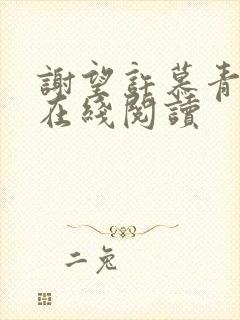 謝望許慕青
在綫閱讀
二兔